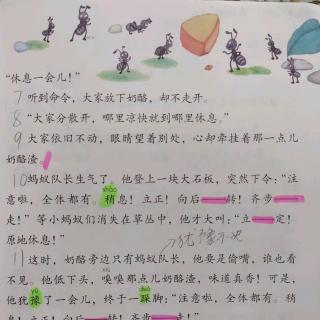 “休息一会儿!”
7 听到命令，大家放下奶酪，却不走开。
8 “大家分散开，哪里凉快就到哪里休息。”
9 大家依旧不动，眼睛望着别处，心却牵挂着那一点儿
奶酪渣。
shào
10 蚂蚁队长生气了。他登上一块大石板，突然下令：“注
意啦，全体都有。稍息！立正！向后——转！齐步——
走！”等小蚂蚁们消失在草丛中，他才大叫：“立——定！
原地休息！”
犹豫不决
11 这时，奶酪旁边只有蚂蚁队长，他要是偷嘴，谁也看
不见。他低下头，嗅嗅那点儿奶酪渣，味道真香！可是，
yù duò
他犹豫了一会儿，终于一跺脚：“注意啦，全体都有。稍
息！立正！向后——转！齐步——走！”